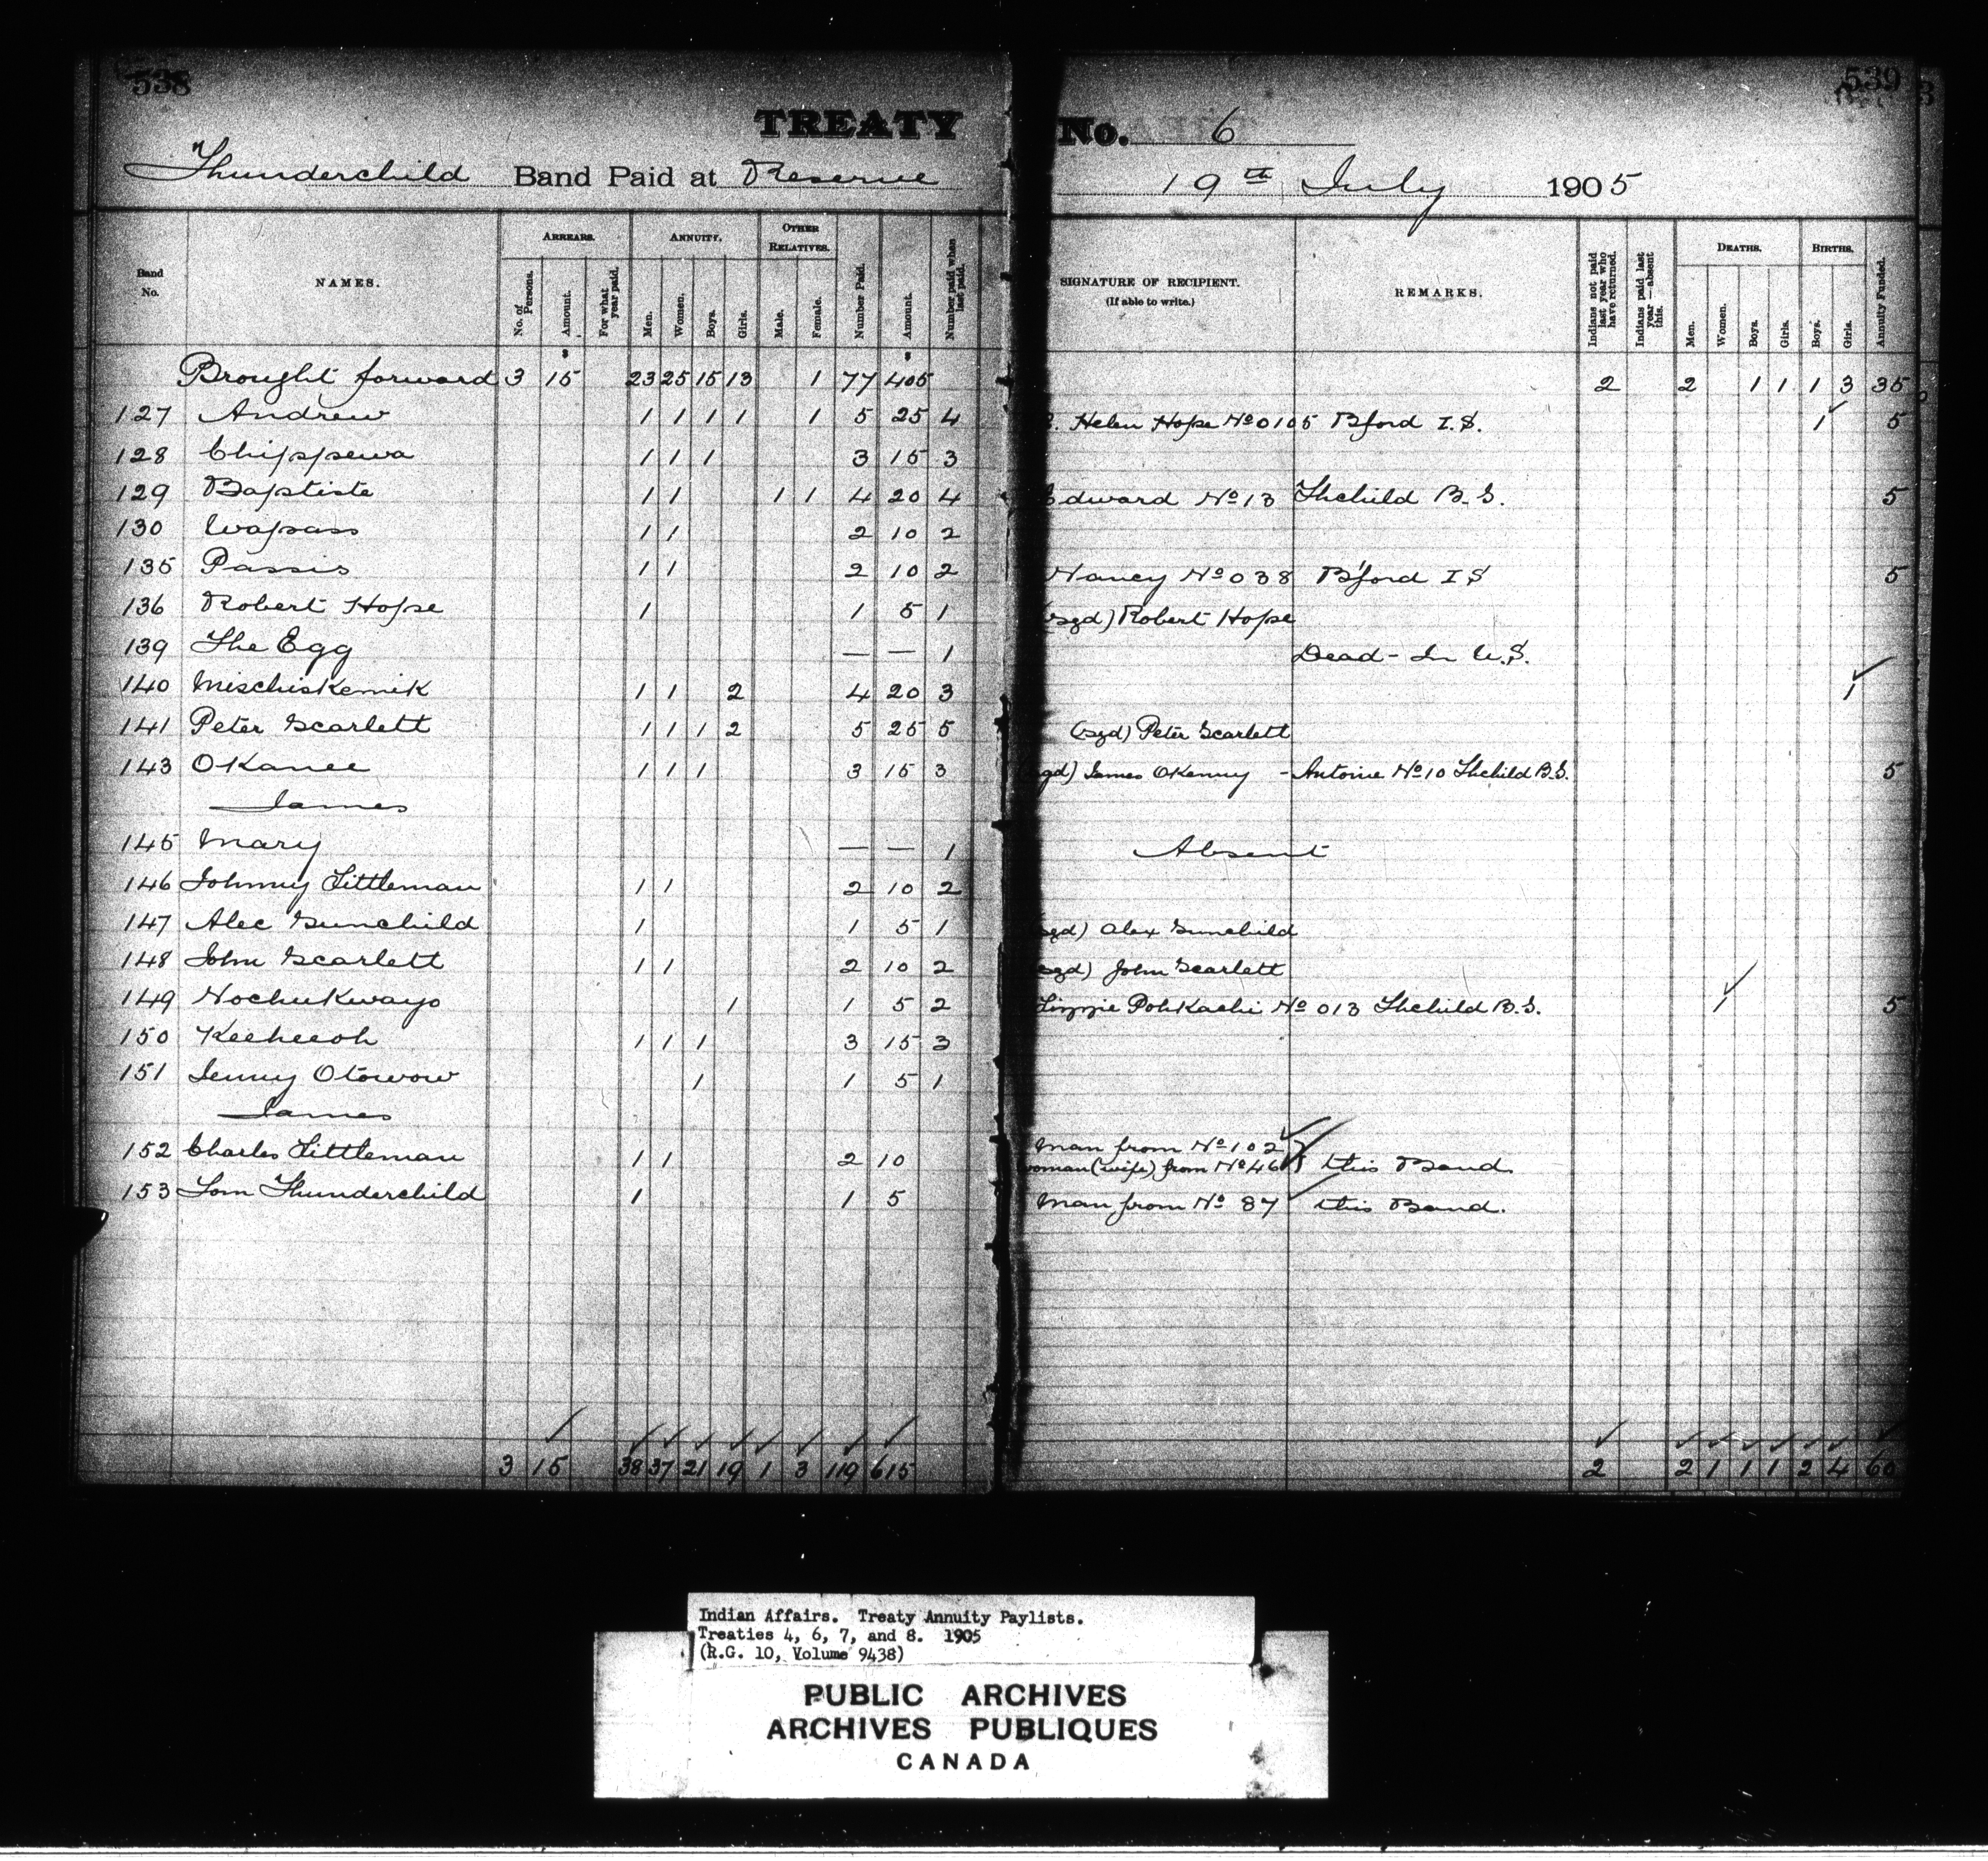 538
539
TREATY No. 6
Thunderchild Band Paid at Reserve 19th July 1905
Band No.
NAMES.
ARREARS.
No. of Persons.
Amount.
For what year paid.
ANNUITY.
Men.
Women.
Boys.
Girls.
OTHER RELATIVES.
Male.
Female.
Number Paid.
Amount.
Number paid when last paid.
SIGNATURE OF RECIPIENT.
(If able to write.)
REMARKS.
Indians not paid last year who have returned.
Indians paid last year—absent this.
DEATHS.
Men.
Women.
Boys.
Girls.
BIRTHS.
Boys.
Girls.
Annuity Funded.
Brought forward 3 15 23 25 15 13 1 77 405 2 2 1 1 1 3 35
127 Andrew 1 1 1 1 1 5 25 4 Helen Hope No 0105 Bford I.S. 1 5
128 Chippewa 1 1 1 3 15 3
129 Baptiste 1 1 1 1 4 20 4 Edward No 13 Thchild B.S. 5
130 Wapass 1 1 2 10 2
135 Passis 1 1 2 10 2 Nancy No 038 B'ford I S 5
136 Robert Hope 1 1 5 1 (sgd) Robert Hope
139 The Egg — — 1 Dead - In U.S.
140 Mischiskemik 1 1 2 4 20 3 1
141 Peter Scarlett 1 1 1 2 5 25 5 (sgd) Peter Scarlett
143 OKanee 1 1 1 3 15 3 (sgd) James OKenny - Antoine No 10 Thchild B.S. 5
James
145 Mary — — 1 Absent
146 Johnny Littleman 1 1 2 10 2
147 Alec Sunchild 1 1 5 1 (sgd) Alex Sunchild
148 John Scarlett 1 1 2 10 2 (sgd) John Scarlett
149 Nochukwayo 1 1 5 2 Lizzie PohKachi No 013 Thchild B.S. 1 5
150 Keeheeoh 1 1 1 3 15 3
151 Jenny Otowow 1 1 5 1
James
152 Charles Littleman 1 1 2 10 Man from No 102
woman (wife) from No 46 } this Band.
153 Tom Thunderchild 1 1 5 Man from No 87 this Band.
3 15 38 37 21 19 1 3 119 615 2 2 1 1 1 2 4 60
Indian Affairs. Treaty Annuity Paylists.
Treaties 4, 6, 7, and 8. 1905
(R.G. 10, Volume 9438)
PUBLIC ARCHIVES
ARCHIVES PUBLIQUES
CANADA